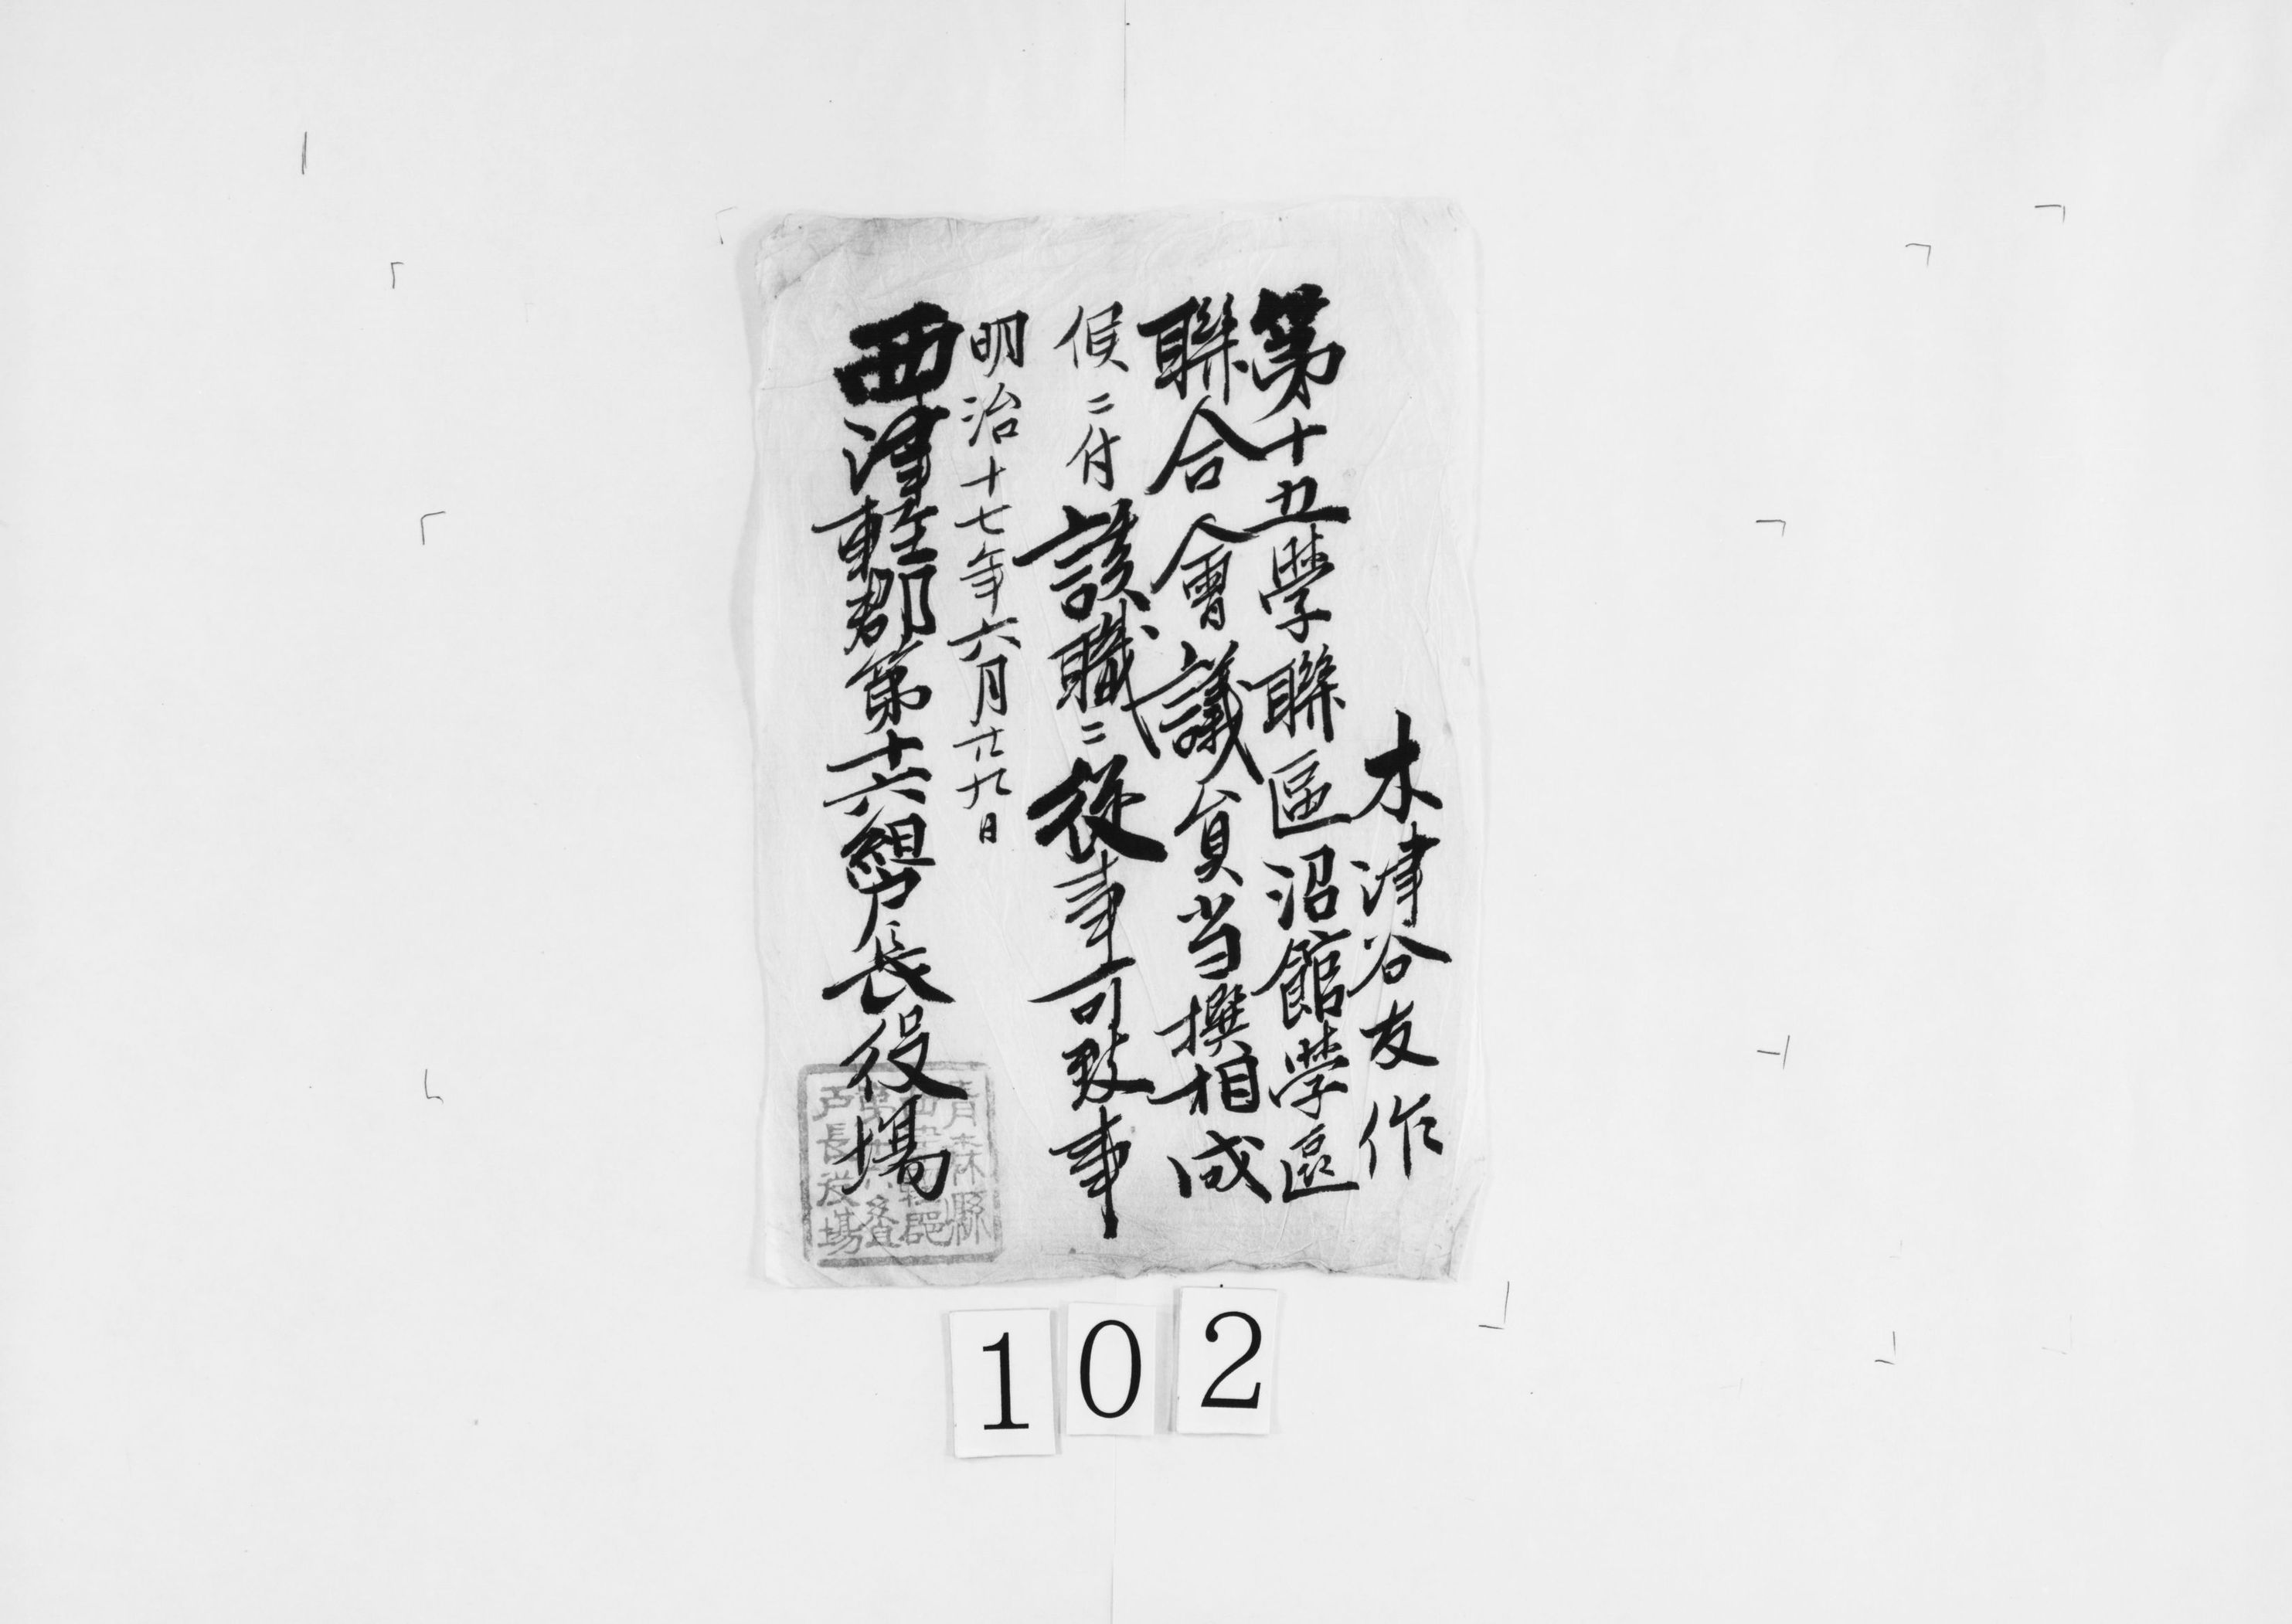 木津谷友作
第十五學聯區沼館學區
聯合會議員当撰相成
候ニ付該職ニ從事可致事
明治十七年六月廿九日
西津軽郡第十六組戸長役場
青森縣
西津軽郡
戸長役場
102